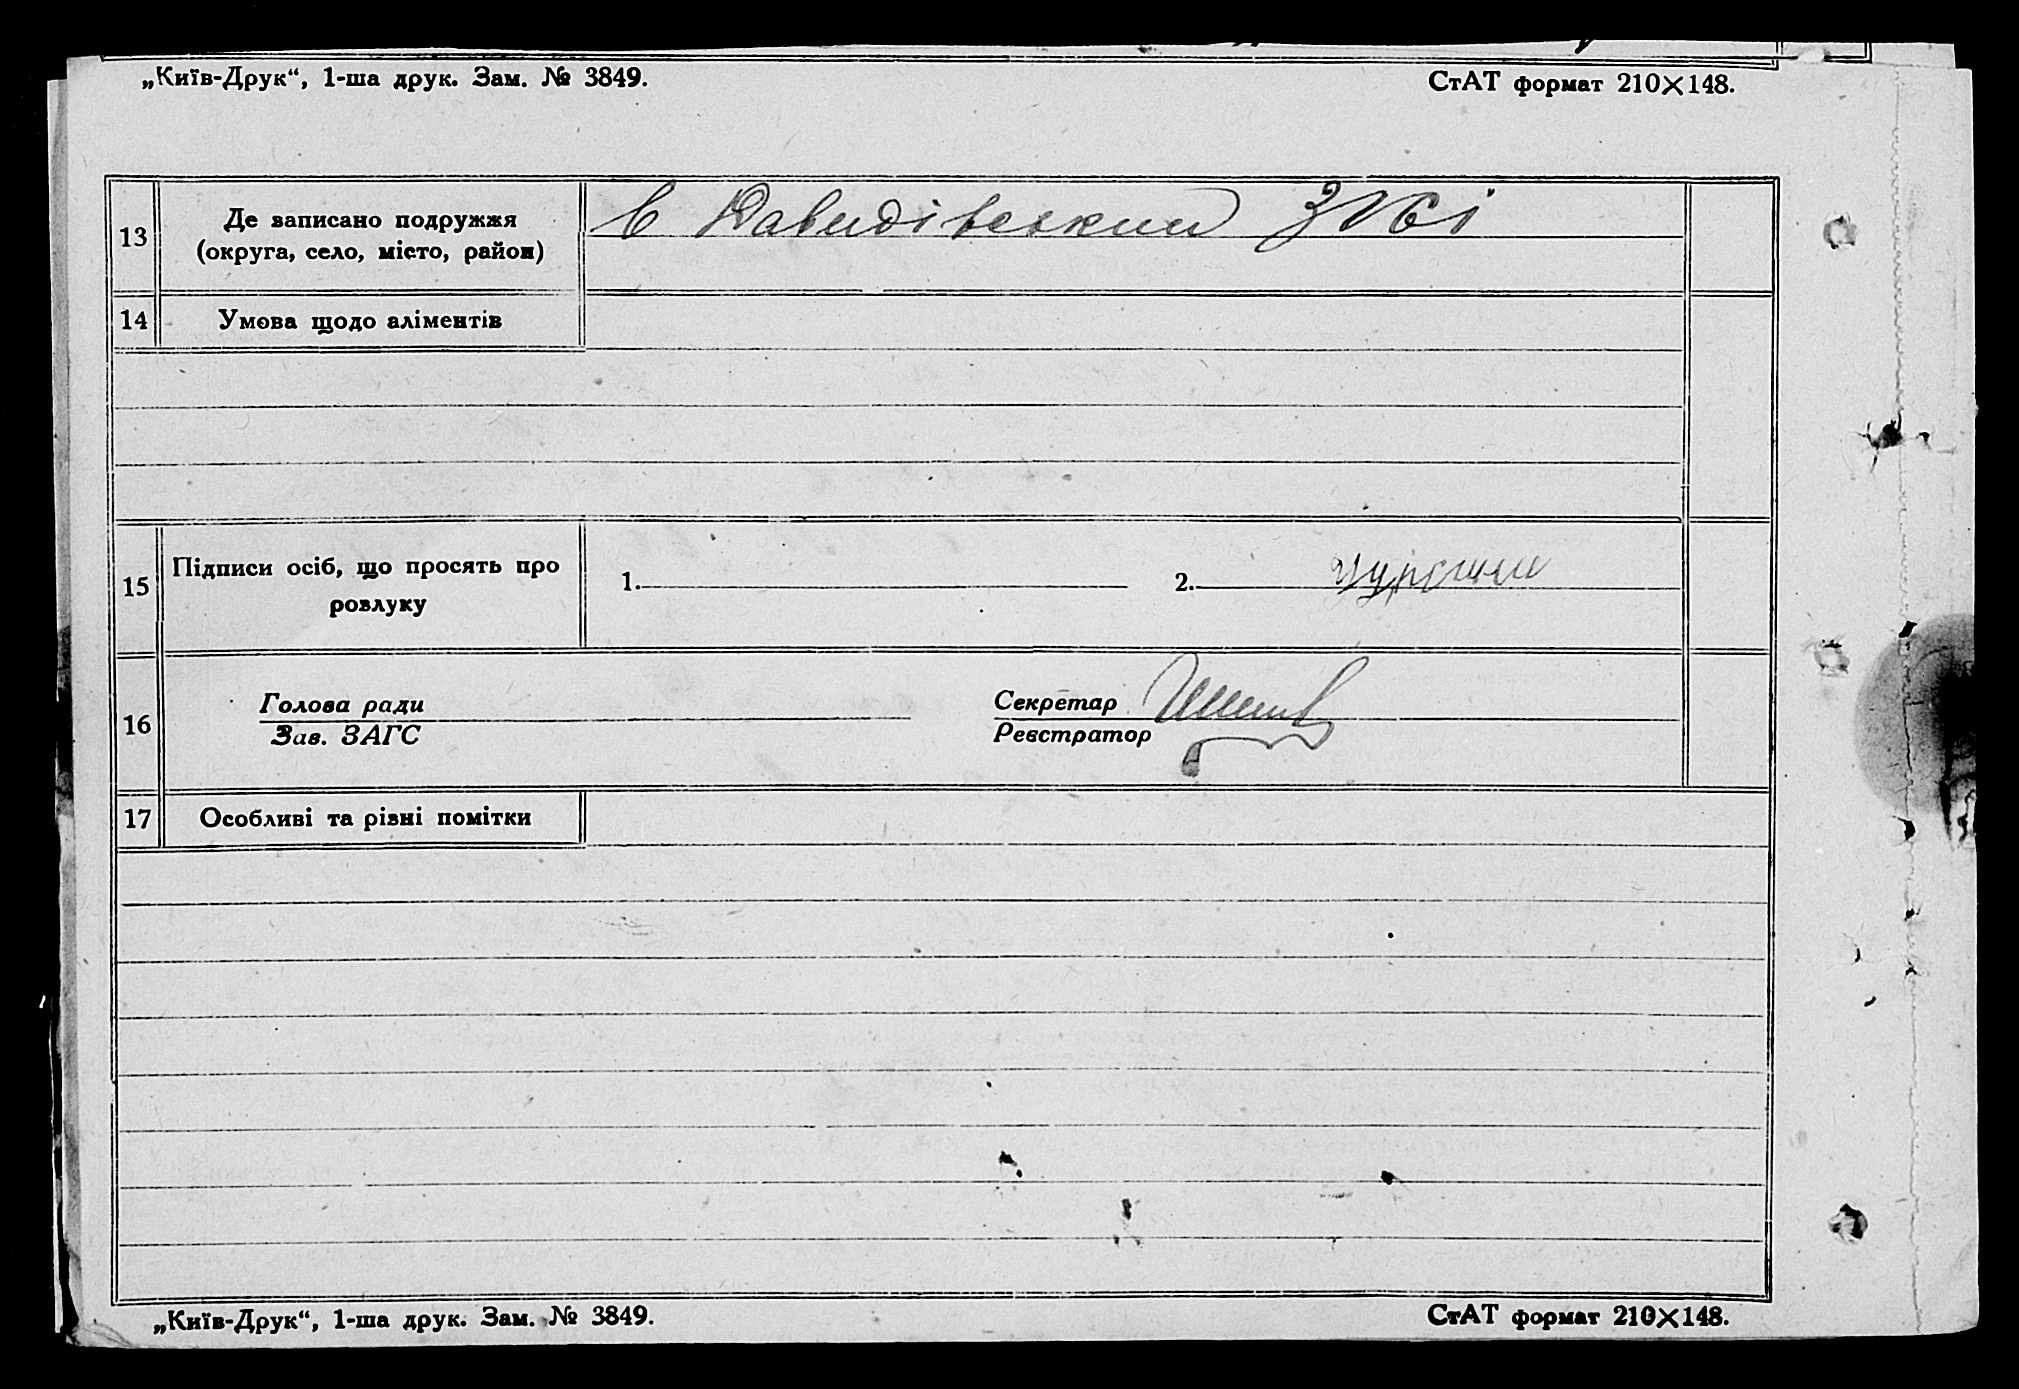 „Київ-Друк“, 1-ша друк. Зам. № 3849. СтАТ формат 210×148.
13 Де записано подружжя (округа, село, місто, район) в Давидівським
14 Умова щодо аліментів
15 Підписи осіб, що просять про розлуку 1. 2.
16 Голова ради Секретар
Зав. ЗАГС Реєстратор
17 Особливі та різні помітки
„Київ-Друк“, 1-ша друк. Зам. № 3849. СтАТ формат 210×148.